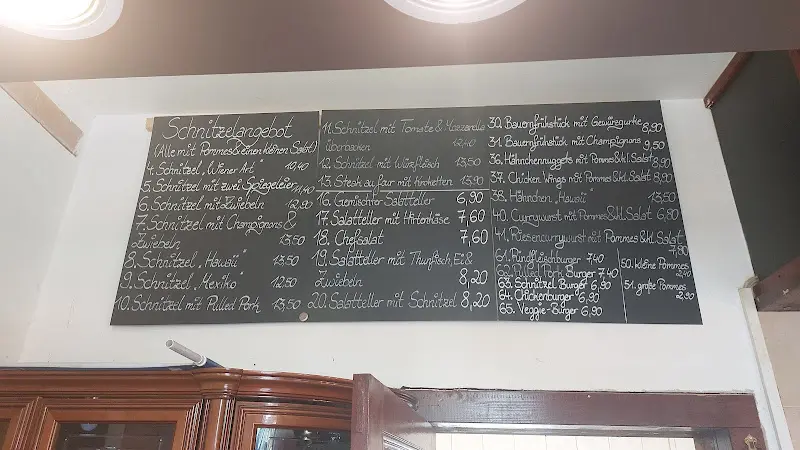 Schnitzelangebot
(Alle mit Pommes & einen kleinen Salat)
4. Schnitzel „Wiener Art" 10,40
5. Schnitzel mit zwei Spiegeleier 11,40
6. Schnitzel mit Zwiebeln 12,90
7. Schnitzel mit Champignons &
Zwiebeln 13,50
8. Schnitzel „Hawaii" 13,50
9. Schnitzel „Mexiko" 12,50
10. Schnitzel mit Pulled Pork 13,50
11. Schnitzel mit Tomate & Mozzarella
überbacken 12,40
12. Schnitzel mit Würzfleisch 13,50
13. Steak au four mit Kroketten 13,90
16. Gemischter Salatteller 6,90
17. Salatteller mit Hirtenkäse 7,60
18. Chefsalat 7,60
19. Salatteller mit Thunfisch, Ei &
Zwiebeln 8,20
20. Salatteller mit Schnitzel 8,20
30. Bauernfrühstück mit Gewürzgurke 8,90
31. Bauernfrühstück mit Champignons 9,50
36. Hähnchennuggets mit Pommes & kl. Salat 8,90
37. Chicken Wings mit Pommes & kl. Salat 8,90
38. Hähnchen „Hawaii" 13,50
40. Currywurst mit Pommes & kl. Salat 6,80
41. Riesencurrywurst mit Pommes & kl. Salat
7,90
61. Rindfleischburger 7,40
62. Pulled Pork Burger 7,40
63. Schnitzel Burger 6,90
64. Chickenburger 6,90
65. Veggie-Burger 6,90
50. kleine Pommes
2,40
51. große Pommes
2,90